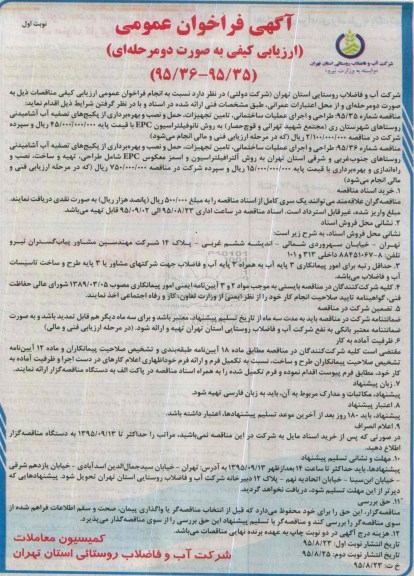 نوبت اول
آگهی فراخوان عمومی
(ارزیابی کیفی به صورت دومرحله‌ای)
(۹۵/۳۶-۹۵/۳۵)
شرکت آب و فاضلاب روستایی استان تهران
وابسته به وزارت نیرو
شرکت آب و فاضلاب روستایی استان تهران (شرکت دولتی) در نظر دارد نسبت به انجام فراخوان عمومی ارزیابی کیفی مناقصات ذیل به
صورت دومرحله‌ای و از محل اعتبارات عمرانی، طبق مشخصات فنی ارائه شده در اسناد و با در نظر گرفتن شرایط ذیل اقدام نماید:
مناقصه شماره ۹۵/۳۵: طراحی و اجرای عملیات ساختمانی، تامین تجهیزات، حمل و نصب و بهره‌برداری از پکیج‌های تصفیه آب آشامیدنی
روستاهای شهرستان ری (مجتمع شهید تهرانی و قوچ‌حصار) به روش نانوفیلتراسیون EPC با قیمت پایه ۴۵/۰۰۰/۰۰۰/۰۰۰ ریال و سپرده
شرکت در مناقصه ۲/۱۰۰/۰۰۰/۰۰۰ ریال (که در مرحله ارزیابی فنی و مالی انجام می‌شود)
مناقصه شماره ۹۵/۳۶: طراحی و اجرای عملیات ساختمانی، تامین تجهیزات، حمل و نصب و بهره‌برداری از پکیج‌های تصفیه آب آشامیدنی
روستاهای جنوب‌غربی و شرقی استان تهران به روش آلترافیلتراسیون و اسمز معکوس EPC شامل طراحی، تهیه و ساخت، نصب و
راه‌اندازی و بهره‌برداری با قیمت پایه ۱۵/۰۰۰/۰۰۰/۰۰۰ ریال و سپرده شرکت در مناقصه ۷۵۰/۰۰۰/۰۰۰ ریال (که در مرحله ارزیابی فنی و
مالی انجام می‌شود)
۱. خرید اسناد مناقصه
مناقصه‌گران علاقه‌مند می‌توانند یک سری کامل از اسناد مناقصه را به مبلغ ۵۰۰/۰۰۰ ریال (پانصد هزار ریال) به صورت نقدی دریافت نمایند.
مبلغ واریز شده، غیرقابل استرداد است. اسناد مناقصه در ساعات اداری ۹۵/۰۸/۲۳ الی ۹۵/۰۹/۰۲ قابل تهیه می‌باشد.
۲. نشانی محل فروش اسناد
نشانی محل فروش اسناد، به شرح زیر است:
تهران - خیابان سهروردی شمالی - اندیشه ششم غربی - پلاک ۱۴ شرکت مهندسین مشاور پیاب‌گستران نیرو
تلفن: ۸-۸۸۴۵۱۰۶۷ داخلی ۳۱۳ و ۱۰۱
۳. حداقل رتبه برای امور پیمانکاری ۳ پایه آب به همراه ۳ پایه آب و فاضلاب جهت شرکتهای مشاور یا ۳ پایه طرح و ساخت تاسیسات
آب و فاضلاب می‌باشد.
۴. کلیه شرکت‌کنندگان در مناقصه بایستی به موجب مواد ۲ و ۳ آئین‌نامه ایمنی امور پیمانکاری مصوب ۱۳۸۹/۰۳/۰۵ شورای عالی حفاظت
فنی، گواهینامه تایید صلاحیت انجام کار خود را از نظر ایمنی از وزارت تعاون، کار و رفاه اجتماعی اخذ نمایند.
۵. تضمین شرکت در مناقصه
ضمانتنامه شرکت در مناقصه باید به مدت سه ماه از تاریخ تسلیم پیشنهاد، معتبر باشد و برای سه ماه دیگر هم قابل تمدید باشد و به صورت
ضمانتنامه معتبر بانکی به نفع شرکت آب و فاضلاب روستائی استان تهران تهیه و ارائه شود. (در مرحله ارزیابی فنی و مالی)
۶. ظرفیت آماده به کار
مقتضی است کلیه شرکت‌کنندگان در مناقصه مطابق ماده ۱۸ آیین‌نامه طبقه‌بندی و تشخیص صلاحیت پیمانکاران و ماده ۱۲ آیین‌نامه
تشخیص صلاحیت پیمانکاران طرح و ساخت، نسبت به تکمیل فرم و ارائه فرم خوداظهاری اعلام کارهای در دست اجرا و ظرفیت آماده به
کار خود، مطابق فرم پیوست اقدام نموده و فرم تکمیل شده را به همراه اسناد مناقصه در پاکت الف به دستگاه مناقصه‌گزار ارائه نمایند.
۷. زبان پیشنهاد
پیشنهاد، مکاتبات و مدارک مربوط به آن، باید به زبان فارسی تهیه شود.
۸. اعتبار پیشنهاد
پیشنهاد، باید ۱۸۰ روز بعد از آخرین موعد تسلیم پیشنهادها، اعتبار داشته باشد.
۹. اعلام انصراف
در صورتی که پس از خرید اسناد مایل به شرکت در این مناقصه نمی‌باشید، مراتب را حداکثر تا ۱۳۹۵/۰۹/۱۳ به دستگاه مناقصه‌گزار
اطلاع دهید.
۱۰. مهلت و نشانی تسلیم پیشنهاد
پیشنهادها، باید حداکثر تا ساعت ۱۴ بعدازظهر ۱۳۹۵/۰۹/۱۳ به آدرس: تهران - خیابان سیدجمال‌الدین اسدآبادی - خیابان یازدهم شرقی
- خیابان ابن‌سینا - خیابان اتحادیه نهم - پلاک ۱۲ دبیرخانه شرکت آب و فاضلاب روستایی استان تهران تحویل شود. پیشنهادهایی که
دیرتر از این مهلت تسلیم شود، دریافت نخواهد گردید.
۱۱. حق بررسی
مناقصه‌گزار، این حق را برای خود محفوظ می‌دارد که قبل از انتخاب مناقصه‌گر یا واگذاری پیمان، صحت و سقم اطلاعات فراهم شده از
سوی مناقصه‌گر را بررسی کند و مناقصه‌گر با تسلیم پیشنهاد این حق بررسی را از سوی مناقصه‌گذار می‌پذیرد.
۱۲. هزینه درج آگهی در دو نوبت چاپ به عهده برنده نهایی مناقصات می‌باشد.
تاریخ انتشار نوبت اول: ۹۵/۸/۲۳
تاریخ انتشار نوبت دوم: ۹۵/۸/۲۵
خ ت: ۹۵/۸/۲۳
کمیسیون معاملات
شرکت آب و فاضلاب روستائی استان تهران